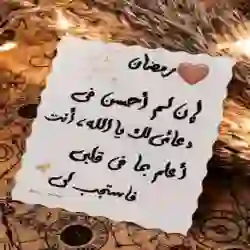 رمضان
إن لم أحسن في
دعائي لك يا الله، أنت
أعلم بما في قلبي
فاستجب لي